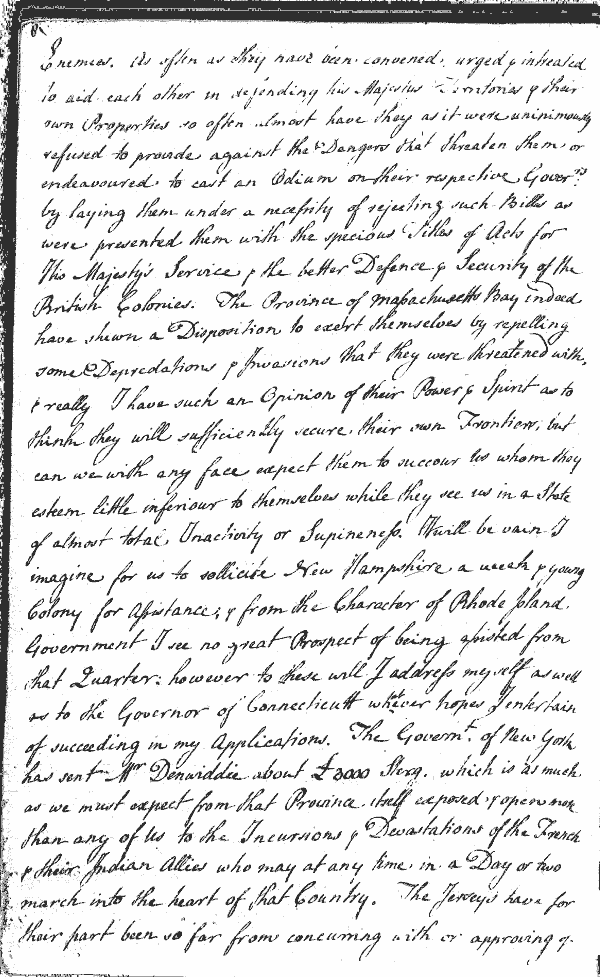 Enemies. As often as they have been convened, urged & intreated
to aid each other in defending his Majestys Territories & their
own Properties so often almost have they as it were uninimously
refused to provide against the Dangers that threaten them or
endeavoured to cast an Odium on their respective Goverrs.
by laying them under a necessity of rejecting such Bills as
were presented them with the specious Titles of Acts for
His Majesty's Service & the better Defence & Security of the
British Colonies. The Province of Massachusetts Bay indeed
have shewn a Disposition to exert themselves by repelling
some Depredations & Invasions that they were threatened with,
& really I have such an Opinion of their Power & Spirit as to
think they will sufficiently secure their own Frontiers, but
can we with any face expect them to succour us whom they
esteem little inferiour to themselves while they see us in a State
of almost total Inactivity or Supineness. Twill be vain I
imagine for us to sollicite New Hampshire a weak & young
Colony for Assistance; & from the Character of Rhode Island
Government I see no great Prospect of being assisted from
that Quarter: however to these will I address myself as well
as to the Governor of Connecticutt whatever hopes I entertain
of succeeding in my Applications. The Governt. of New York
has sent Mr Denwiddie about £3000 Sterg. which is as much
as we must expect from that Province itself exposed & open more
than any of Us to the Incursions & Devastations of the French
& their Indian Allies who may at any time in a Day or two
march into the heart of that Country. The Jerseys have for
their part been so far from concurring with or approving of